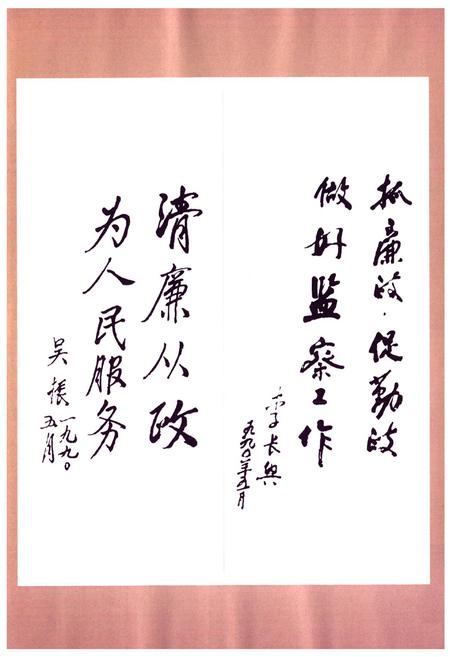 抓廉政·促勤政
做好监察工作
李长
一九九〇年五月
清廉从政
为人民服务
吴
一九九〇
五月